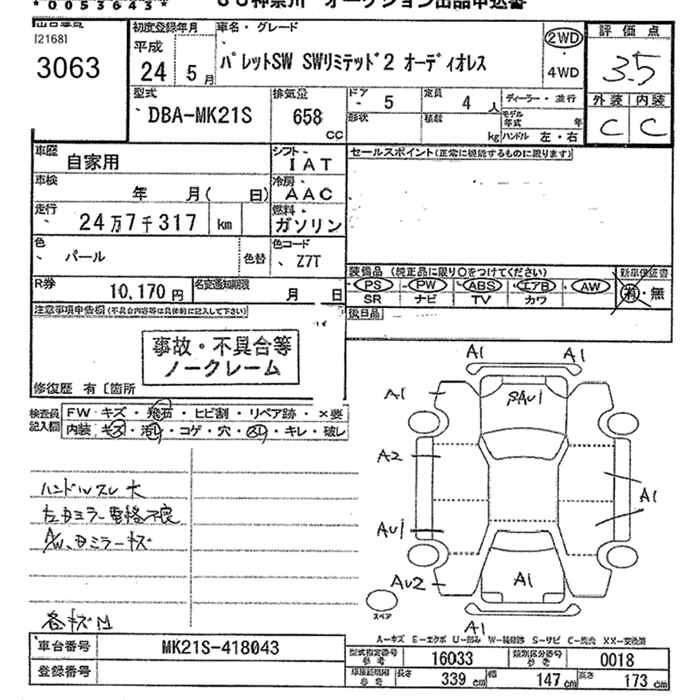 *0053643*
出品申込書
[2168]
3063
初度登録年月
平成
24 5月
車名・グレード
パレットSW SWリミテッド2 オーディオレス
2WD
4WD
評価点
3.5
外装 内装
C C
型式
DBA-MK21S
排気量
658
CC
ドア
5
定員
4人
形状
積載
kg
ディーラー・並行
モデル年式 年
ハンドル 左・右
車歴
自家用
シフト
IAT
セールスポイント(正常に機能するものに限ります)
車検
年 月( 日)
冷房
AAC
走行
24万7千317 km
燃料
ガソリン
色
パール
色替
色コード
Z7T
装備品(純正品に限り○をつけてください)
新車保証書
PS PW ABS エアB AW
SR ナビ TV カワ
有・無
R券
10,170円
名変通知期限
月 日
後日品
注意事項申告欄(不具合内容等は具体的に記入して下さい)
事故・不具合等
ノークレーム
修復歴 有〔箇所
検査員記入欄
FW キズ・飛石・ヒビ割・リペア跡・×要
内装 キズ・汚れ・コゲ・穴・スレ・キレ・破レ
ハンドルスレ大
左Dミラー電格不良
A/W、Dミラーキズ
各キズ凹
A1 A1
A1
SAU1
A2
A1
AU1
AU2
A1
スペア
A1
A-キズ E-エクボ U-凹み W-補修跡 S-サビ C-腐食 XX-交換済
車台番号
MK21S-418043
登録番号
型式指定番号
参考
16033
類別区分番号
参考
0018
車検証記載
参考
長さ
339 cm
幅
147 cm
高さ
173 cm